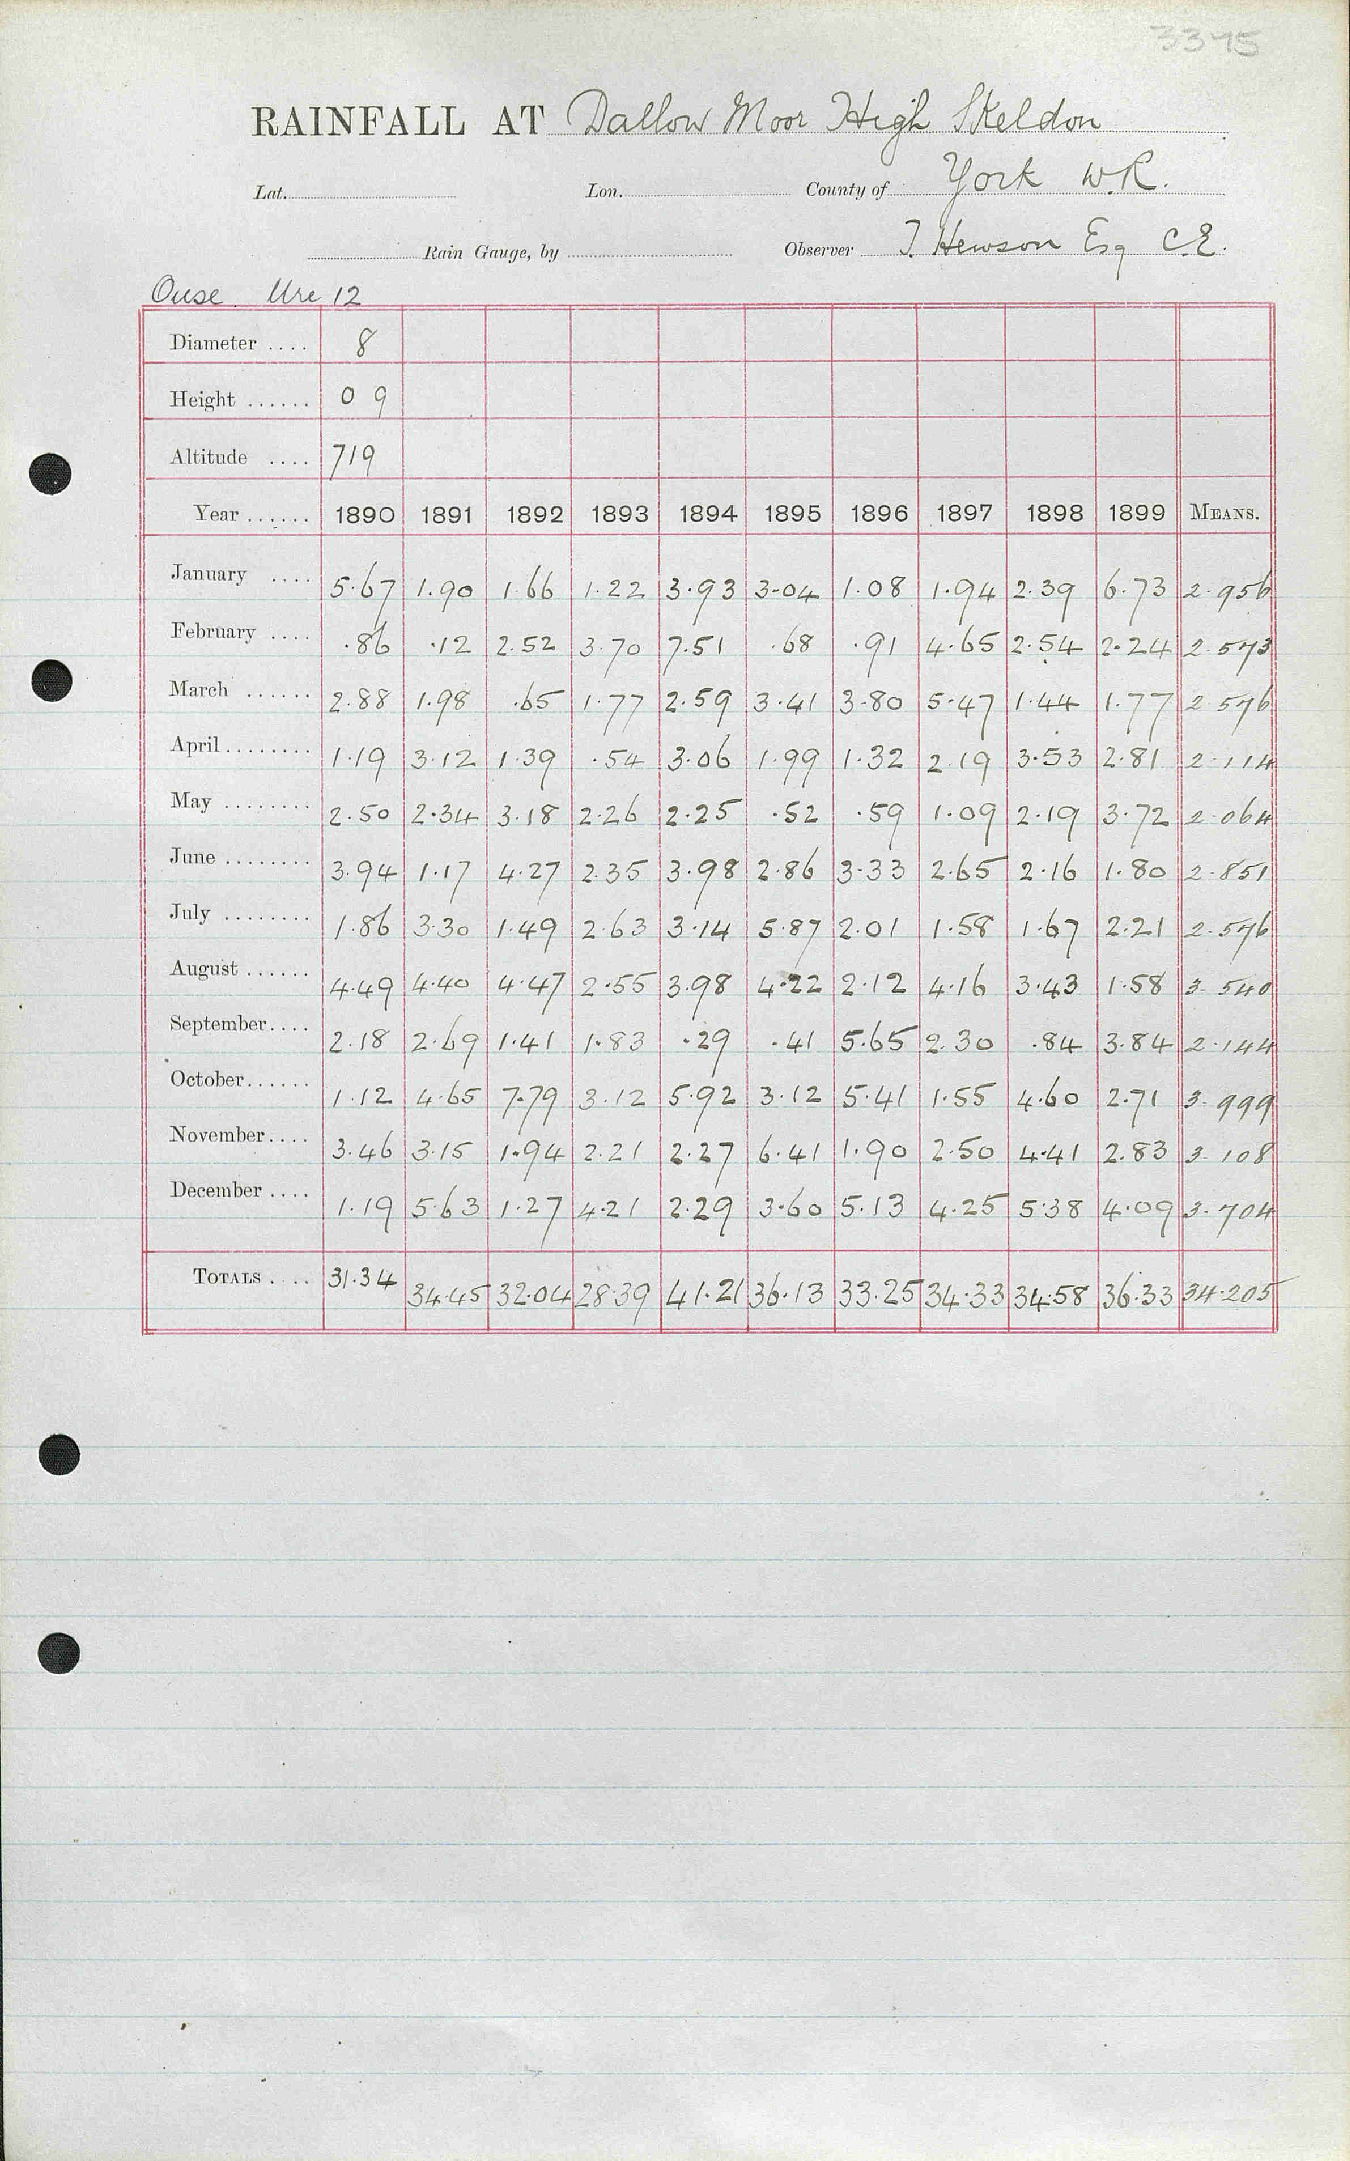 3375
RAINFALL AT Dallow Moor High Skeldon
Lat. Lon. County of York W.R.
Rain Gauge, by Observer T. Hewson Esq C.E.
Ouse Ure 12
Diameter .... 8
Height ...... 0 9
Altitude .... 719
Year ...... 1890 1891 1892 1893 1894 1895 1896 1897 1898 1899 MEANS.
January .... 5.67 1.90 1.66 1.22 3.93 3.04 1.08 1.94 2.39 6.73 2.956
February .... .86 .12 2.52 3.70 7.51 .68 .91 4.65 2.54 2.24 2.573
March ...... 2.88 1.98 .65 1.77 2.59 3.41 3.80 5.47 1.44 1.77 2.576
April ........ 1.19 3.12 1.39 .54 3.06 1.99 1.32 2.19 3.53 2.81 2.114
May ........ 2.50 2.34 3.18 2.26 2.25 .52 .59 1.09 2.19 3.72 2.064
June ........ 3.94 1.17 4.27 2.35 3.98 2.86 3.33 2.65 2.16 1.80 2.851
July ........ 1.86 3.30 1.49 2.63 3.14 5.87 2.01 1.58 1.67 2.21 2.576
August ...... 4.49 4.40 4.47 2.55 3.98 4.22 2.12 4.16 3.43 1.58 3.540
September.... 2.18 2.69 1.41 1.83 .29 .41 5.65 2.30 .84 3.84 2.144
October...... 1.12 4.65 7.79 3.12 5.92 3.12 5.41 1.55 4.60 2.71 3.999
November.... 3.46 3.15 1.94 2.21 2.27 6.41 1.90 2.50 4.41 2.83 3.108
December .... 1.19 5.63 1.27 4.21 2.29 3.60 5.13 4.25 5.38 4.09 3.704
TOTALS .... 31.34 34.45 32.04 28.39 41.21 36.13 33.25 34.33 34.58 36.33 34.205